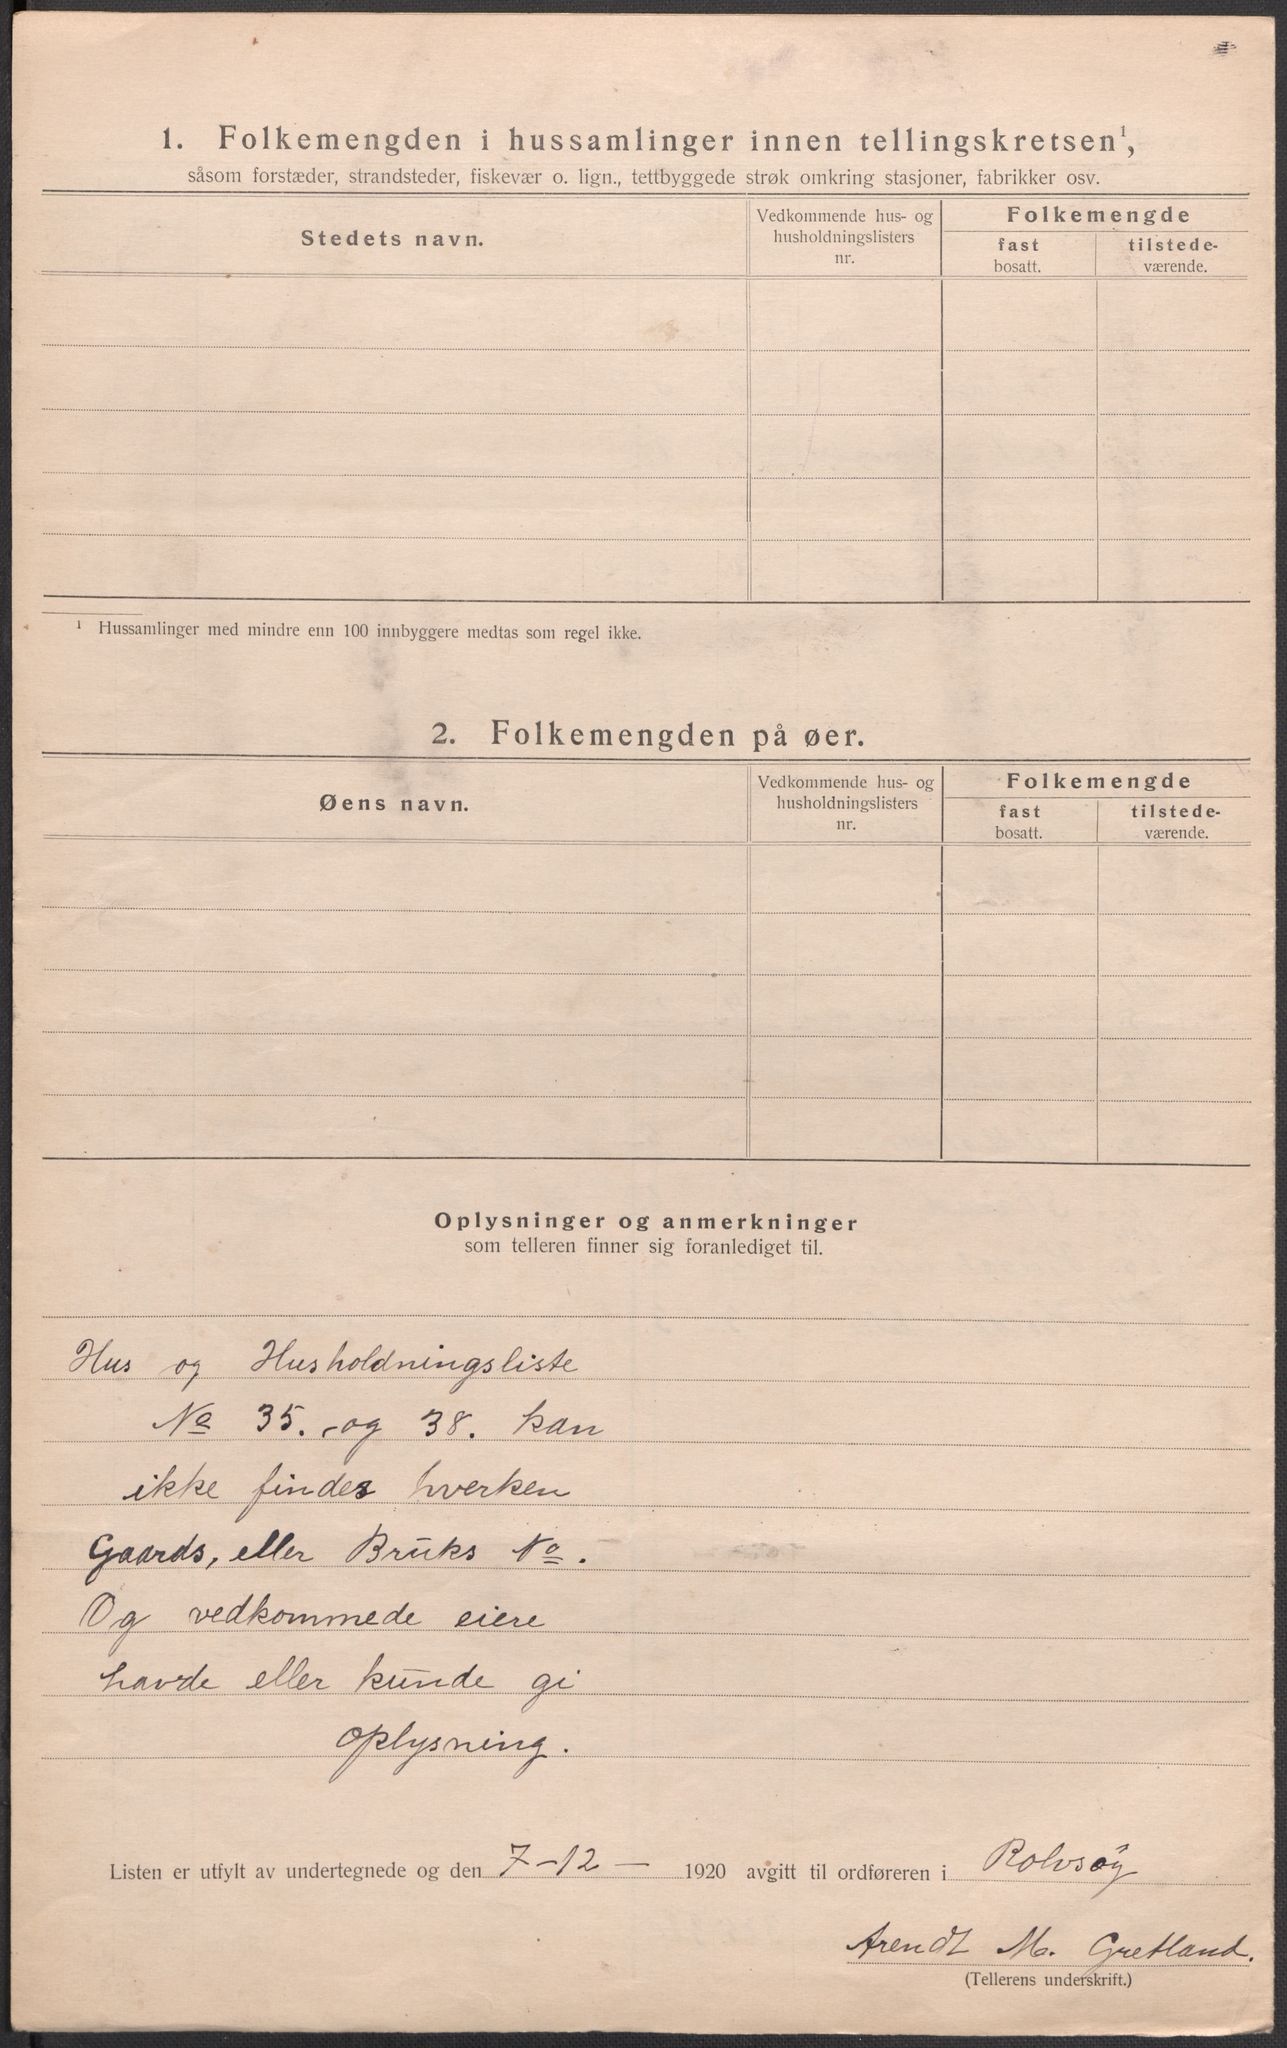 1. Folkemengden i hussamlinger innen tellingskretsen¹,
såsom forstæder, strandsteder, fiskevær o. lign., tettbyggede strøk omkring stasjoner, fabrikker osv.
Stedets navn.
Vedkommende hus- og
husholdningslisters
nr.
Folkemengde
fast
bosatt.
tilstede-
værende.
¹ Hussamlinger med mindre enn 100 innbyggere medtas som regel ikke.
2. Folkemengden på øer.
Øens navn.
Vedkommende hus- og
husholdningslisters
nr.
Folkemengde
fast
bosatt.
tilstede-
værende.
Oplysninger og anmerkninger
som telleren finner sig foranlediget til.
Hus og Husholdningsliste
No 35. og 38. kan
ikke findes hverken
Gaards, eller Bruks No.
Og vedkommede eiere
havde eller kunde gi
oplysning.
Listen er utfylt av undertegnede og den 7-12 - 1920 avgitt til ordføreren i Rolvsøy
Arendt M. Gretland.
(Tellerens underskrift.)